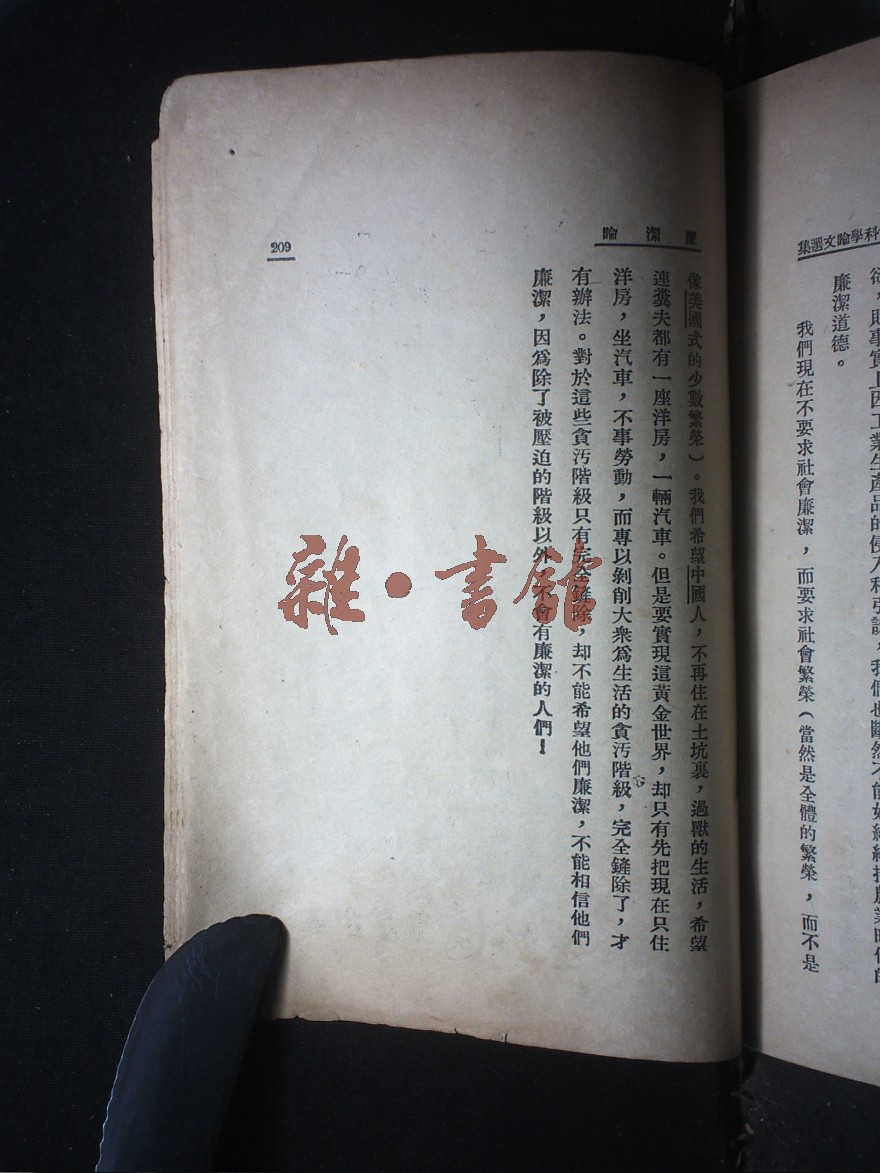 科學論文選集
廉潔道德。
我們現在不要求社會廉潔，而要求社會繁榮（當然是全體的繁榮，而不是
廉潔論
209
像美國式的少數繁榮）。我們希望中國人，不再住在土坑裏，過獸的生活，希望
連糞夫都有一座洋房，一輛汽車。但是要實現這黃金世界，却只有先把現在只住
洋房，坐汽車，不事勞動，而專以剝削大衆爲生活的貪汚階級，完全鏟除了，才
有辦法。對於這些貪汚階級只有完全鏟除，却不能希望他們廉潔，不能相信他們
廉潔，因爲除了被壓迫的階級以外，不會有廉潔的人們！
雜·書館